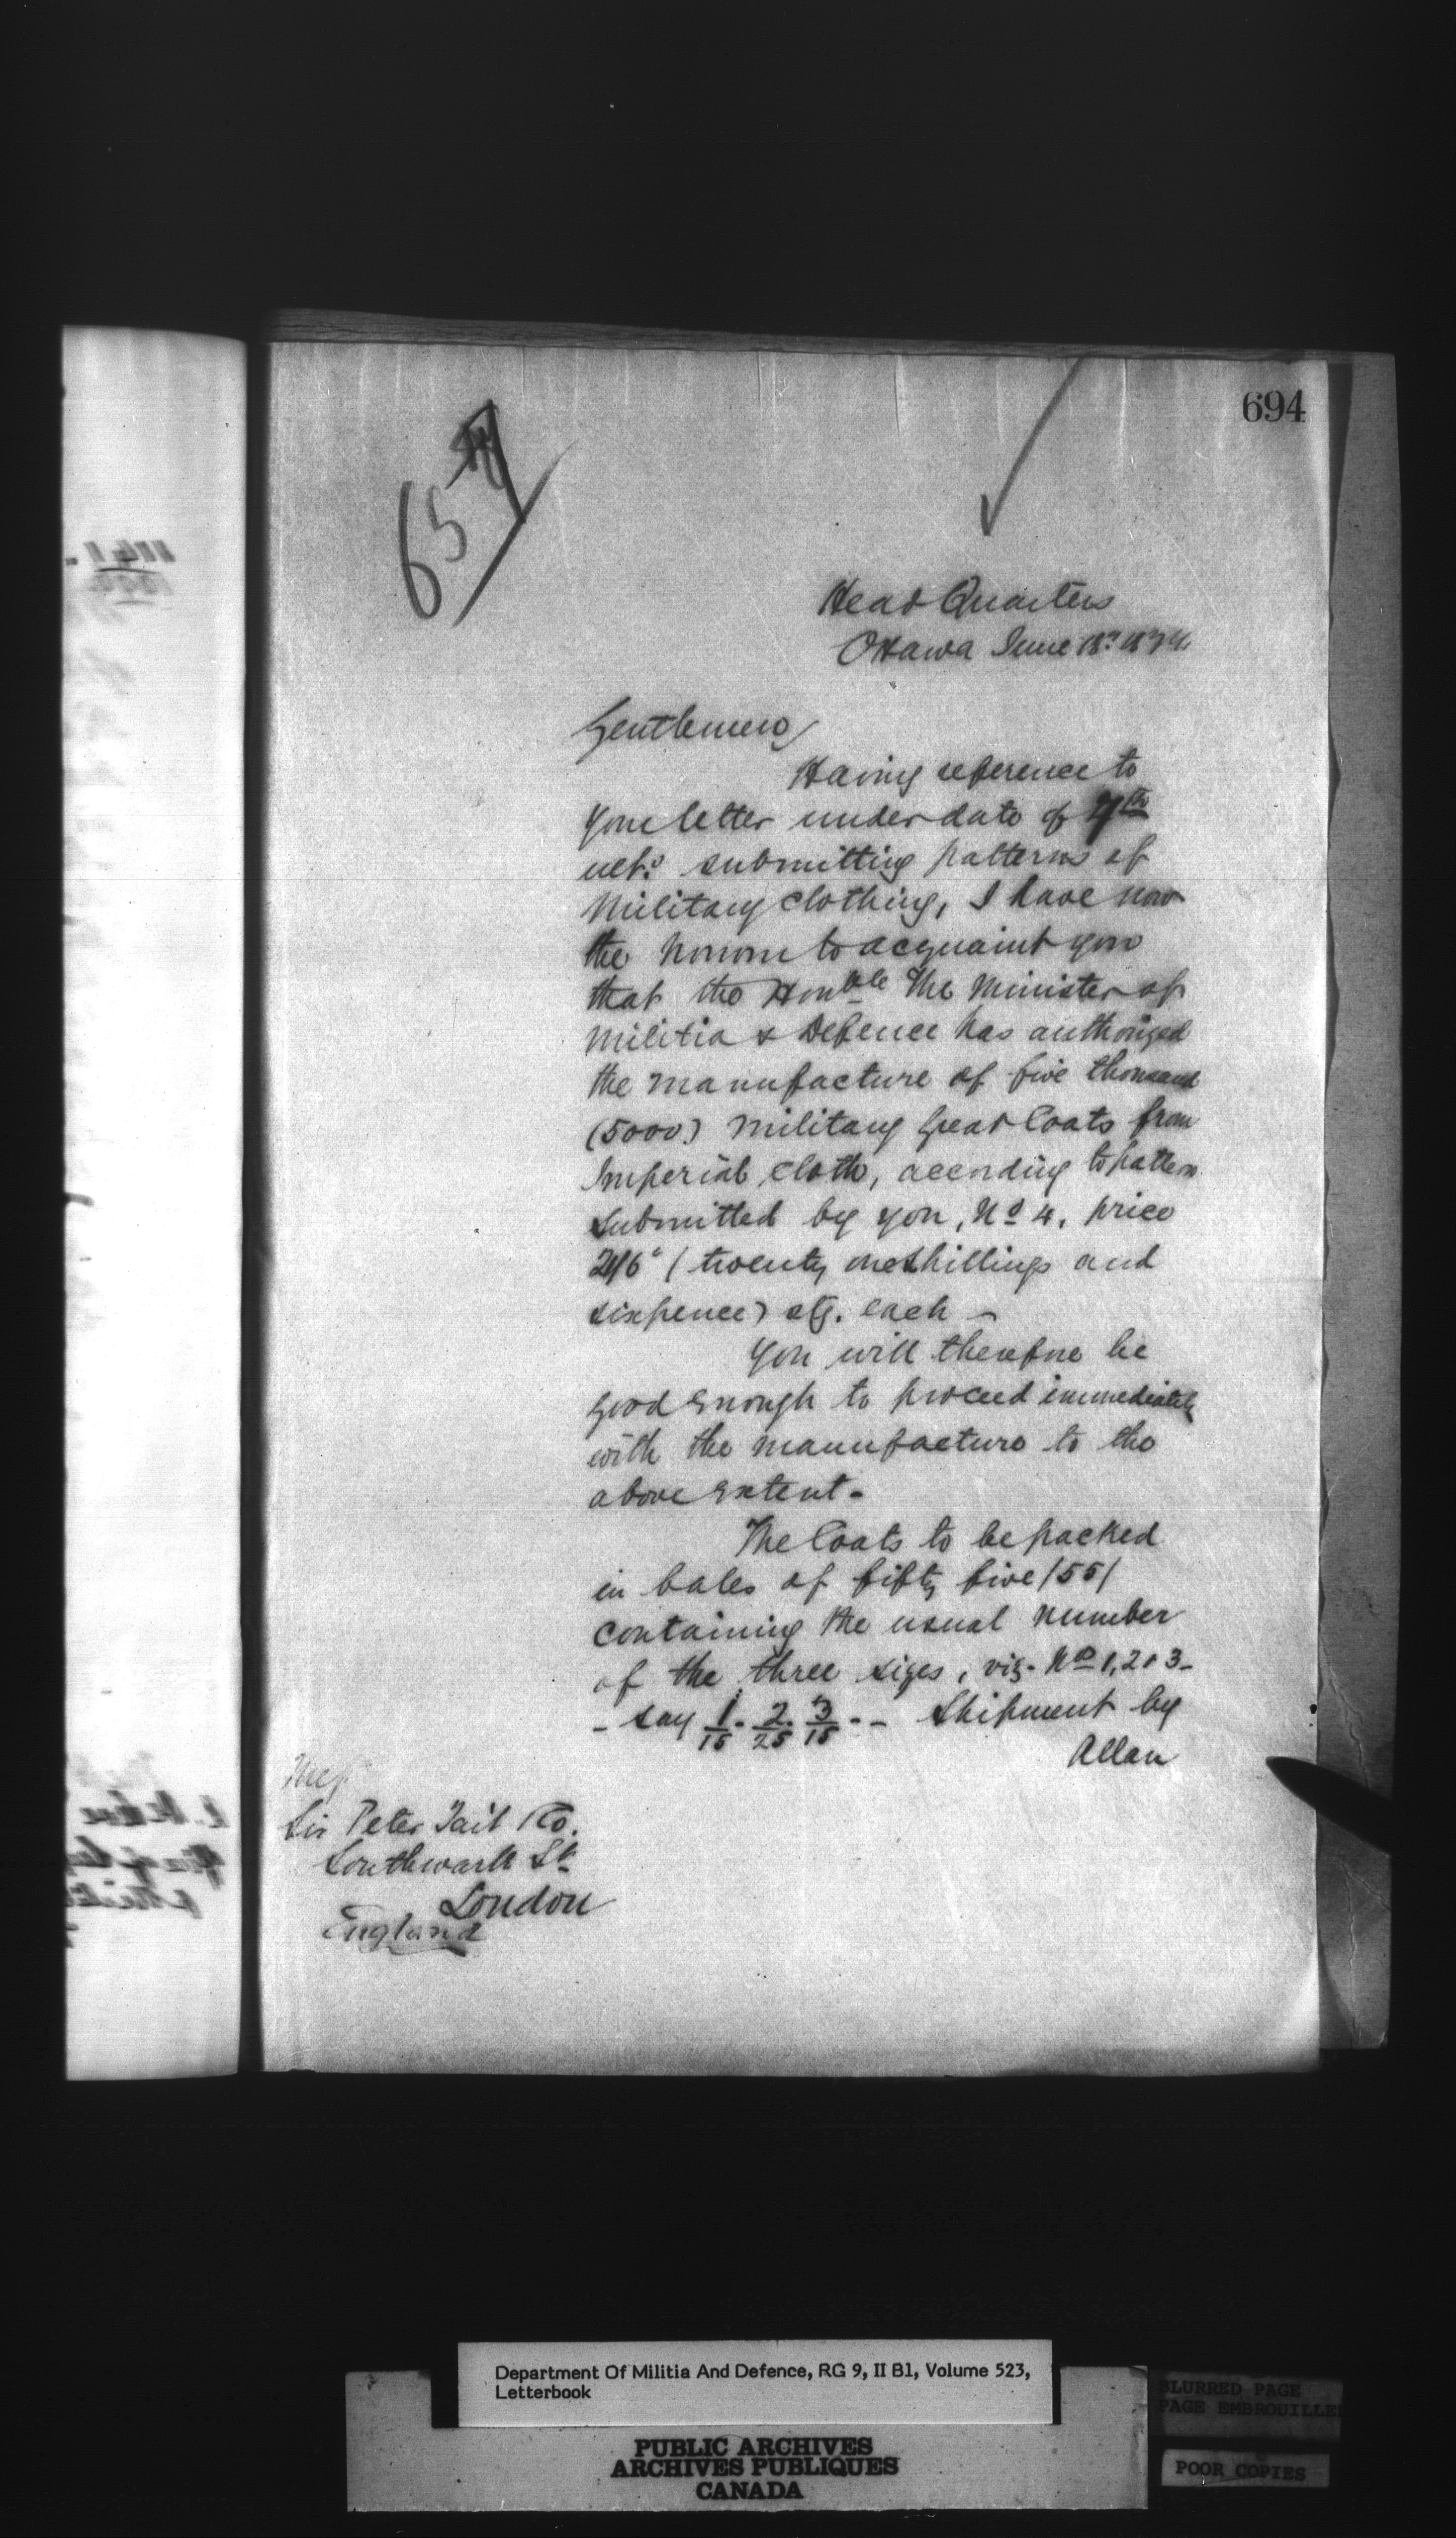 694
65
Head Quarters
Ottawa June 18th 1874
Gentlemen,
Having reference to
your letter under date of 7th
ulto. submitting patterns of
Military Clothing, I have now
the honour to acquaint you
that the Honble The Minister of
Militia & Defence has authorized
the manufacture of five thousand
(5000) Military Great Coats from
Imperial Cloth, according to pattern
submitted by you, No 4, price
21/6d (twenty one shillings and
sixpence) stg. each -
You will therefore be
good enough to proceed immediately
with the manufacture to the
above extent -
The Coats to be packed
in bales of fifty five /55/
containing the usual number
of the three sizes, viz - Nos 1, 2 & 3 -
- say 1/15 - 2/25 - 3/15 - - Shipment by
Allan
Mess
Sir Peter Tait & Co.
Southwark St.
London
England
Department Of Militia And Defence, RG 9, II B1, Volume 523,
Letterbook
PUBLIC ARCHIVES
ARCHIVES PUBLIQUES
CANADA
BLURRED PAGE
PAGE EMBROUILLE
POOR COPIES